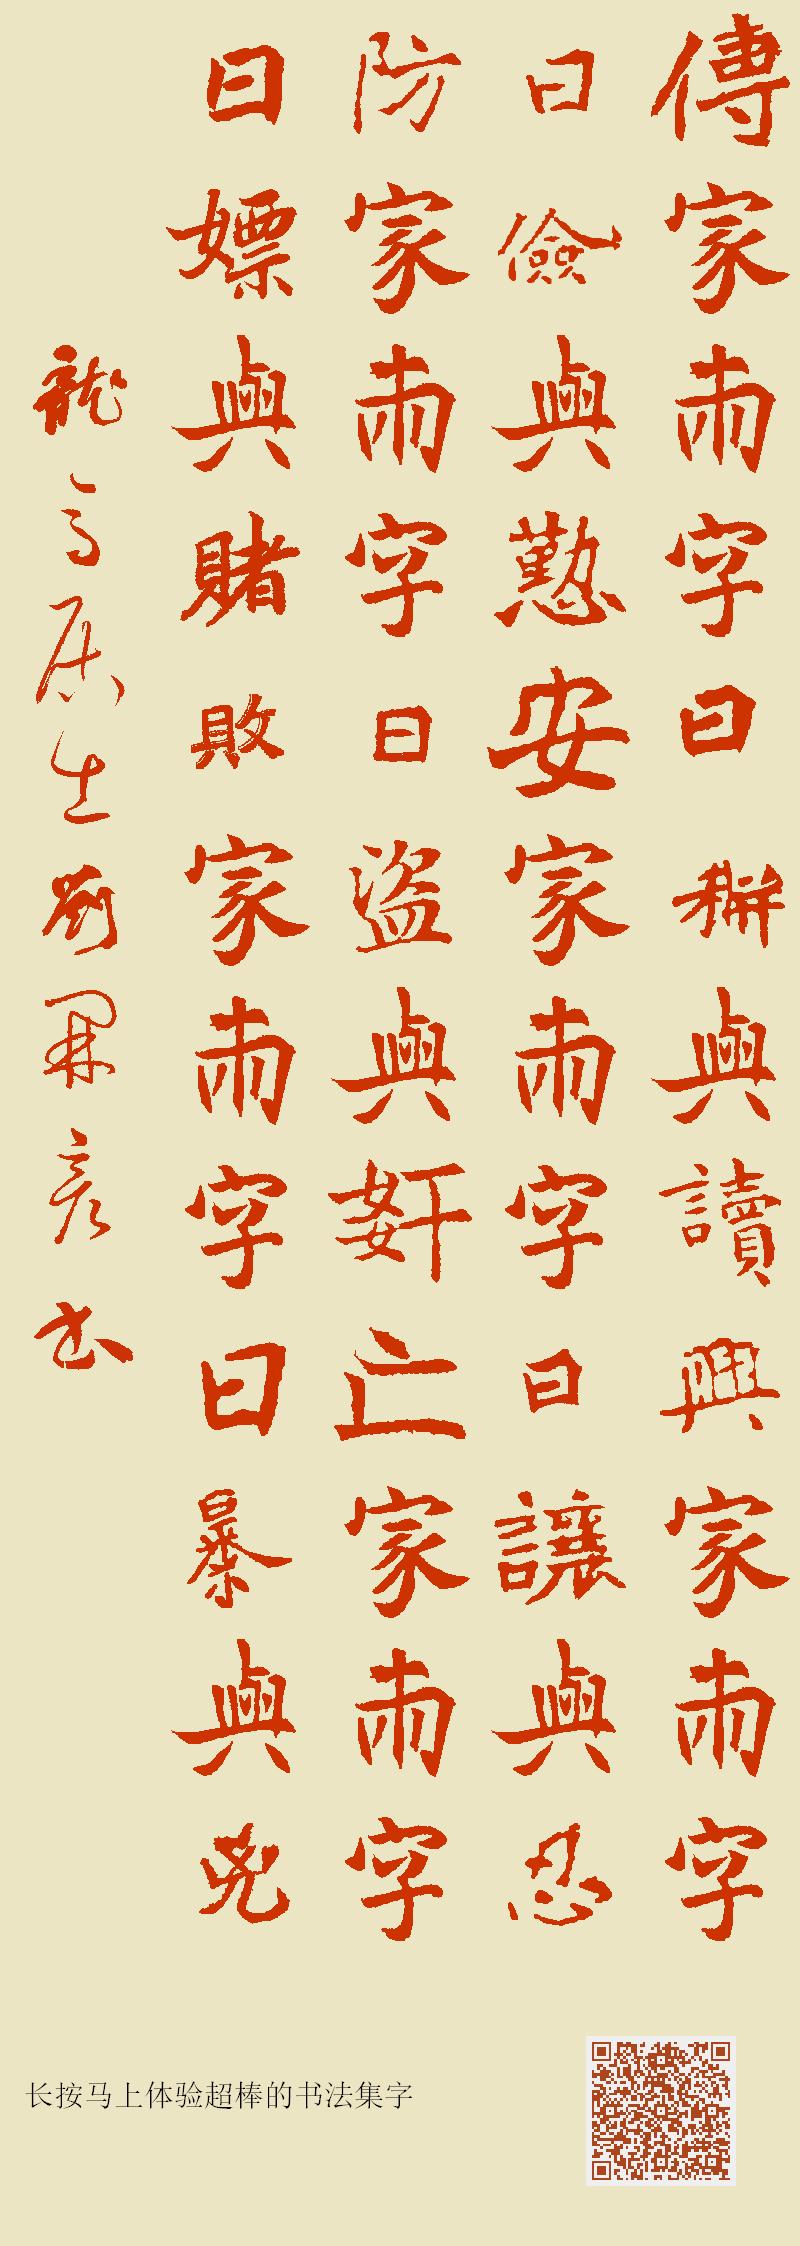 傳家兩字曰耕與讀興家兩字
曰儉與懃安家兩字曰讓與忍
防家兩字曰盜與姧亡家兩字
曰嫖與賭敗家兩字曰暴與兇
龍居士劉彥書
长按马上体验超棒的书法集字